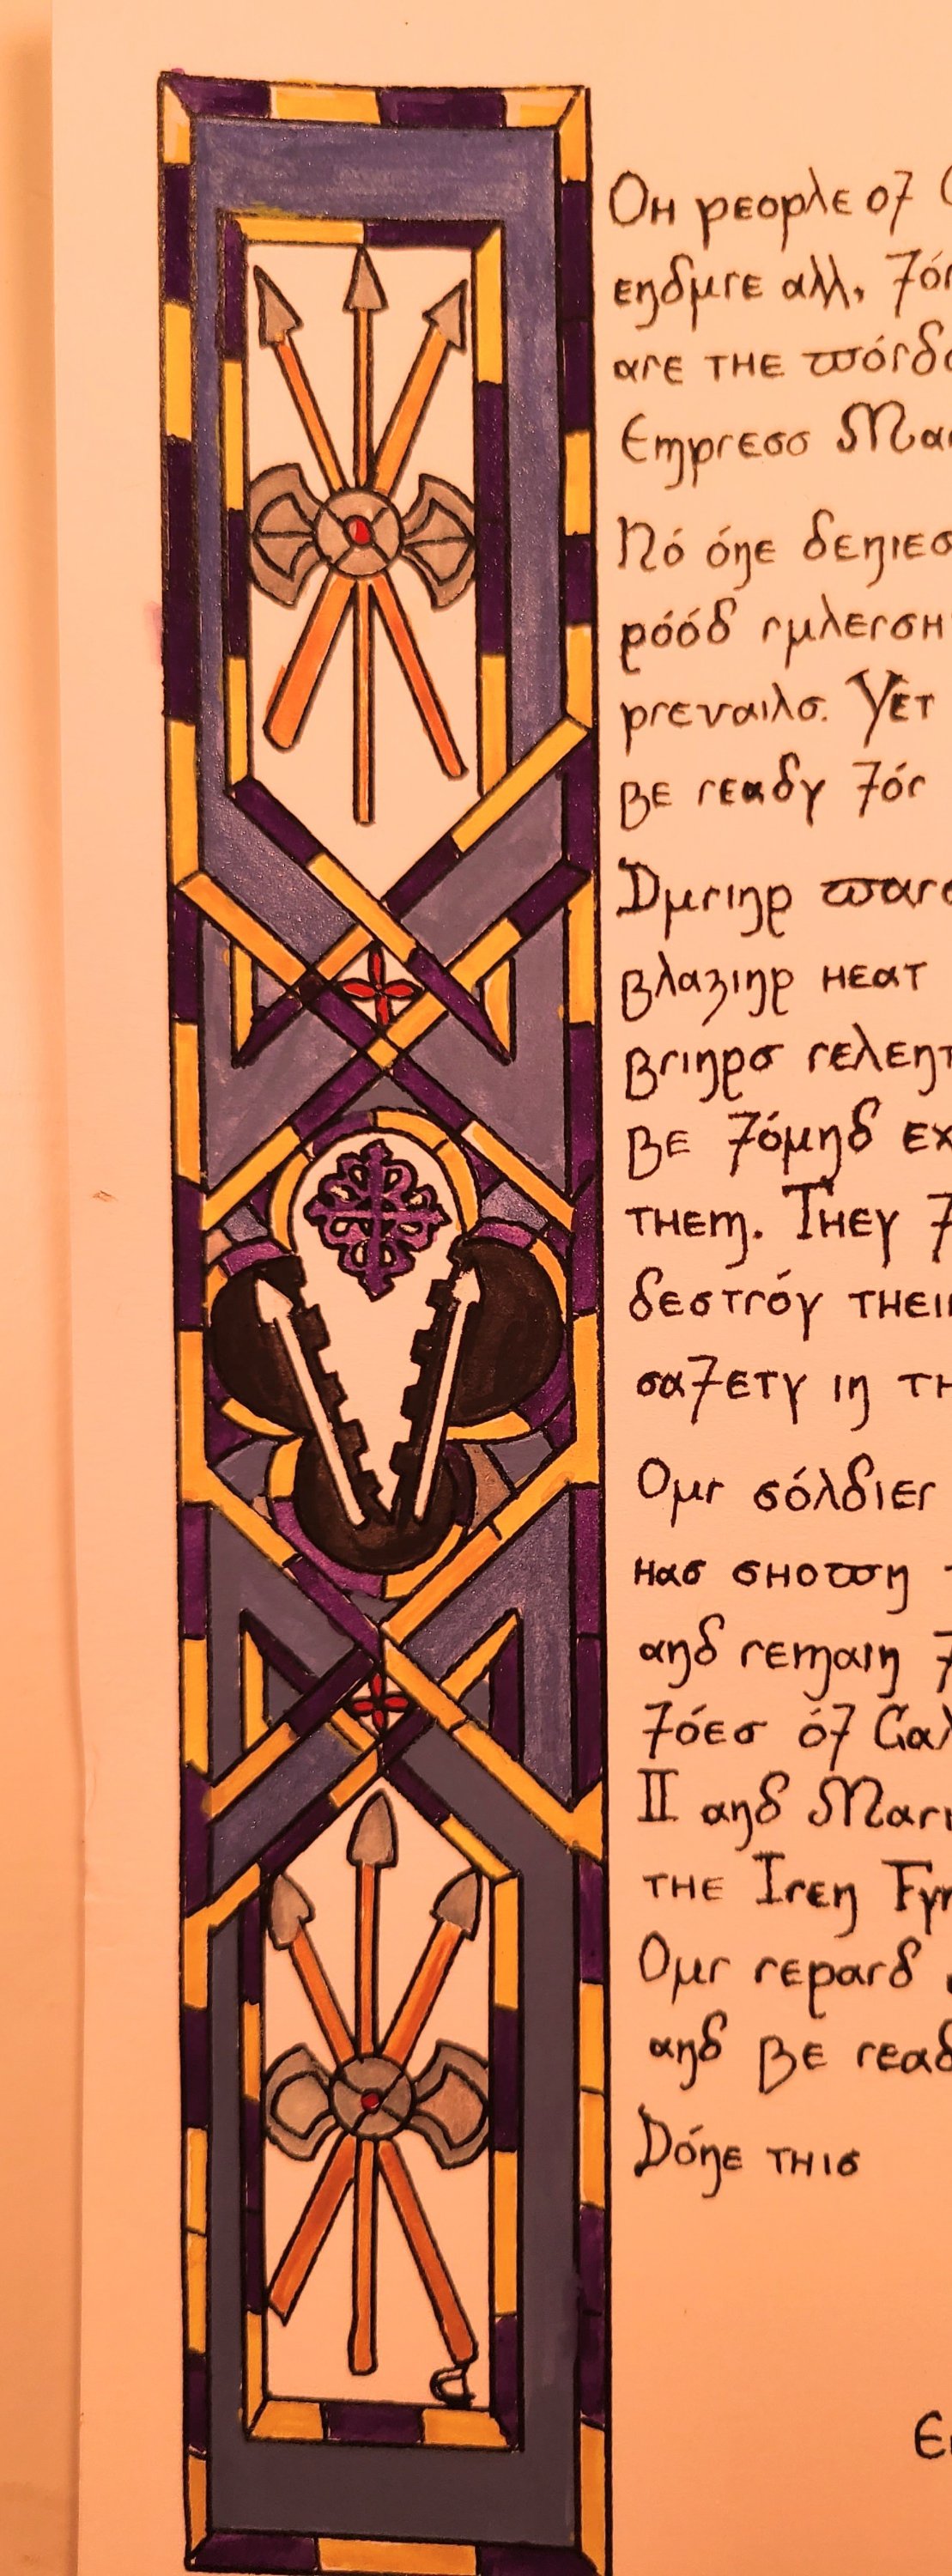 Oh people of
endure all, for
are the words
Empress Mar
No one denies
good rulersh
prevails. Yet
be ready for
During wars
blazing heat
brings relent
be found ex
them. They f
destroy thei
safety in th
Our soldier
has shown
and remain f
foes of Gal
II and Mari
the Iren Fyr
Our regard
and be read
Done this